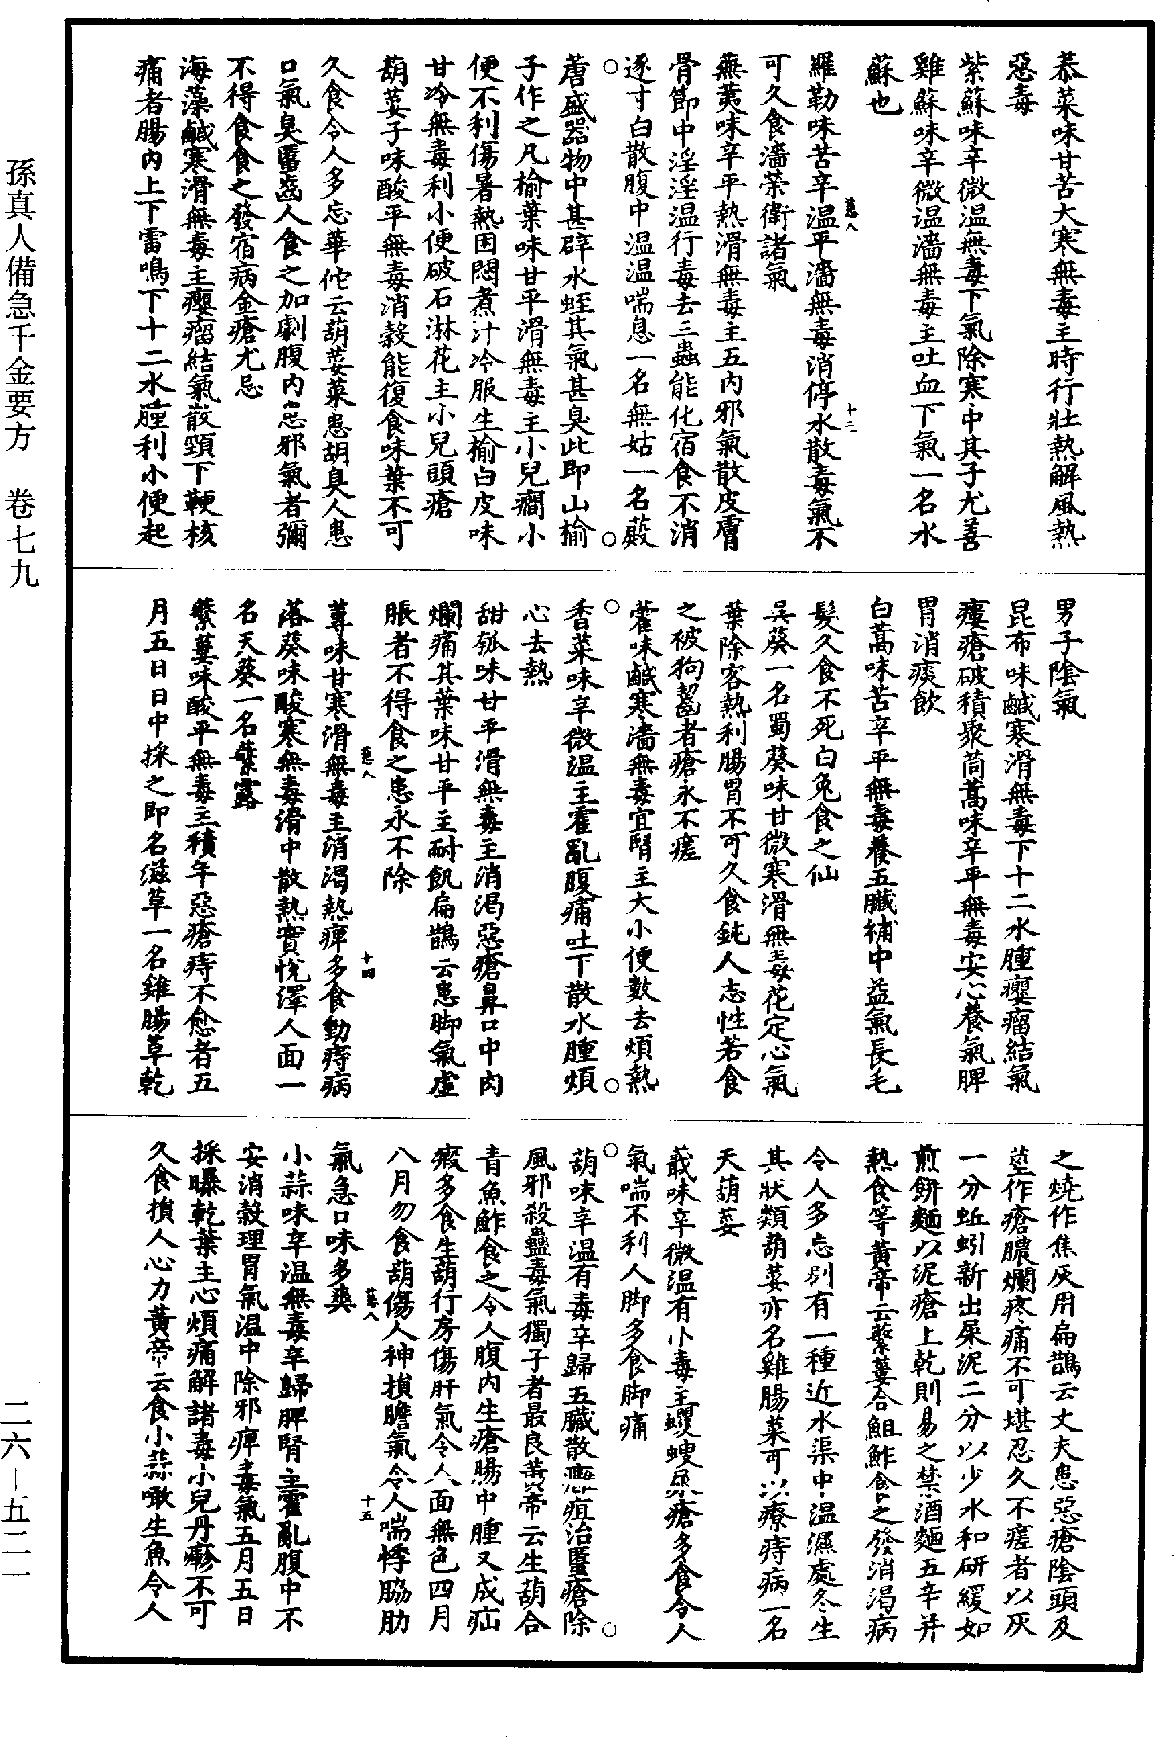 菾菜味甘苦大寒無毒主時行壯熱解風熱
惡毒
紫蘇味辛微溫無毒下氣除寒中其子尤善
雞蘇味辛微溫濇無毒主吐血下氣一名水
蘇也
羅勒味苦辛溫平濇無毒消停水散毒氣不
可久食濇榮衛諸氣
蕪荑味辛平熱滑無毒主五內邪氣散皮膚
骨節中淫淫溫行毒去三蟲能化宿食不消
逐寸白散腹中溫溫喘息一名無姑一名蕨
䕋盛器物中甚辟水蛭其氣甚臭此即山榆
子作之凡榆葉味甘平滑無毒主小兒癇小
便不利傷暑熱困悶煮汁冷服生榆白皮味
甘冷無毒利小便破石淋花主小兒頭瘡
葫荽子味酸平無毒消穀能復食味葉不可
久食令人多忘華佗云葫荽菜患胡臭人患
口氣臭䘌齒人食之加劇腹內患邪氣者彌
不得食食之發宿病金瘡尤忌
海藻鹹寒滑無毒主癭瘤結氣散頸下鞕核
痛者腸內上下雷鳴下十二水腫利小便起
男子陰氣
昆布味鹹寒滑無毒下十二水腫癭瘤結氣
瘻瘡破積聚茼蒿味辛平無毒安心養氣脾
胃消痰飲
白蒿味苦辛平無毒養五臟補中益氣長毛
髮久食不死白兔食之仙
吳葵一名蜀葵味甘微寒滑無毒花定心氣
葉除客熱利腸胃不可久食鈍人志性若食
之被狗齧者瘡永不瘥
藿味鹹寒濇無毒宜腎主大小便數去煩熱
香菜味辛微溫主霍亂腹痛吐下散水腫煩
心去熱
甜瓠味甘平滑無毒主消渴惡瘡鼻口中肉
爛痛其葉味甘平主耐飢扁鵲云患脚氣虛
脹者不得食之患永不除
蓴味甘寒滑無毒主消渴熱痺多食動痔病
落葵味酸寒無毒滑中散熱實悅澤人面一
名天葵一名蘩露
蘩蔞味酸平無毒主積年惡瘡痔不愈者五
月五日日中採之即名滋草一名雞腸草乾
之燒作焦灰用扁鵲云丈夫患惡瘡陰頭及
莖作瘡膿爛疼痛不可堪忍久不瘥者以灰
一分蚯蚓新出屎泥二分以少水和研緩如
煎餅麵以泥瘡上乾則易之禁酒麵五辛并
熱食等黃帝云蘩蔞合䱉鮓食之發消渴病
令人多忘別有一種近水渠中溫濕處冬生
其狀類葫荽亦名雞腸菜可以療痔病一名
天葫荽
蕺味辛微溫有小毒主蠼螋尿瘡多食令人
氣喘不利人脚多食脚痛
葫味辛溫有毒辛歸五臟散癰疽治䘌瘡除
風邪殺蠱毒氣獨子者最良黃帝云生葫合
青魚鮓食之令人腹內生瘡腸中腫又成疝
瘕多食生葫行房傷肝氣令人面無色四月
八月勿食葫傷人神損膽氣令人喘悸脇肋
氣急口味多爽
小蒜味辛溫無毒辛歸脾腎主霍亂腹中不
安消穀理胃氣溫中除邪痺毒氣五月五日
採曝乾葉主心煩痛解諸毒小兒丹疹不可
久食損人心力黃帝云食小蒜噉生魚令人
孫真人備急千金要方 卷七九
二六—五二一